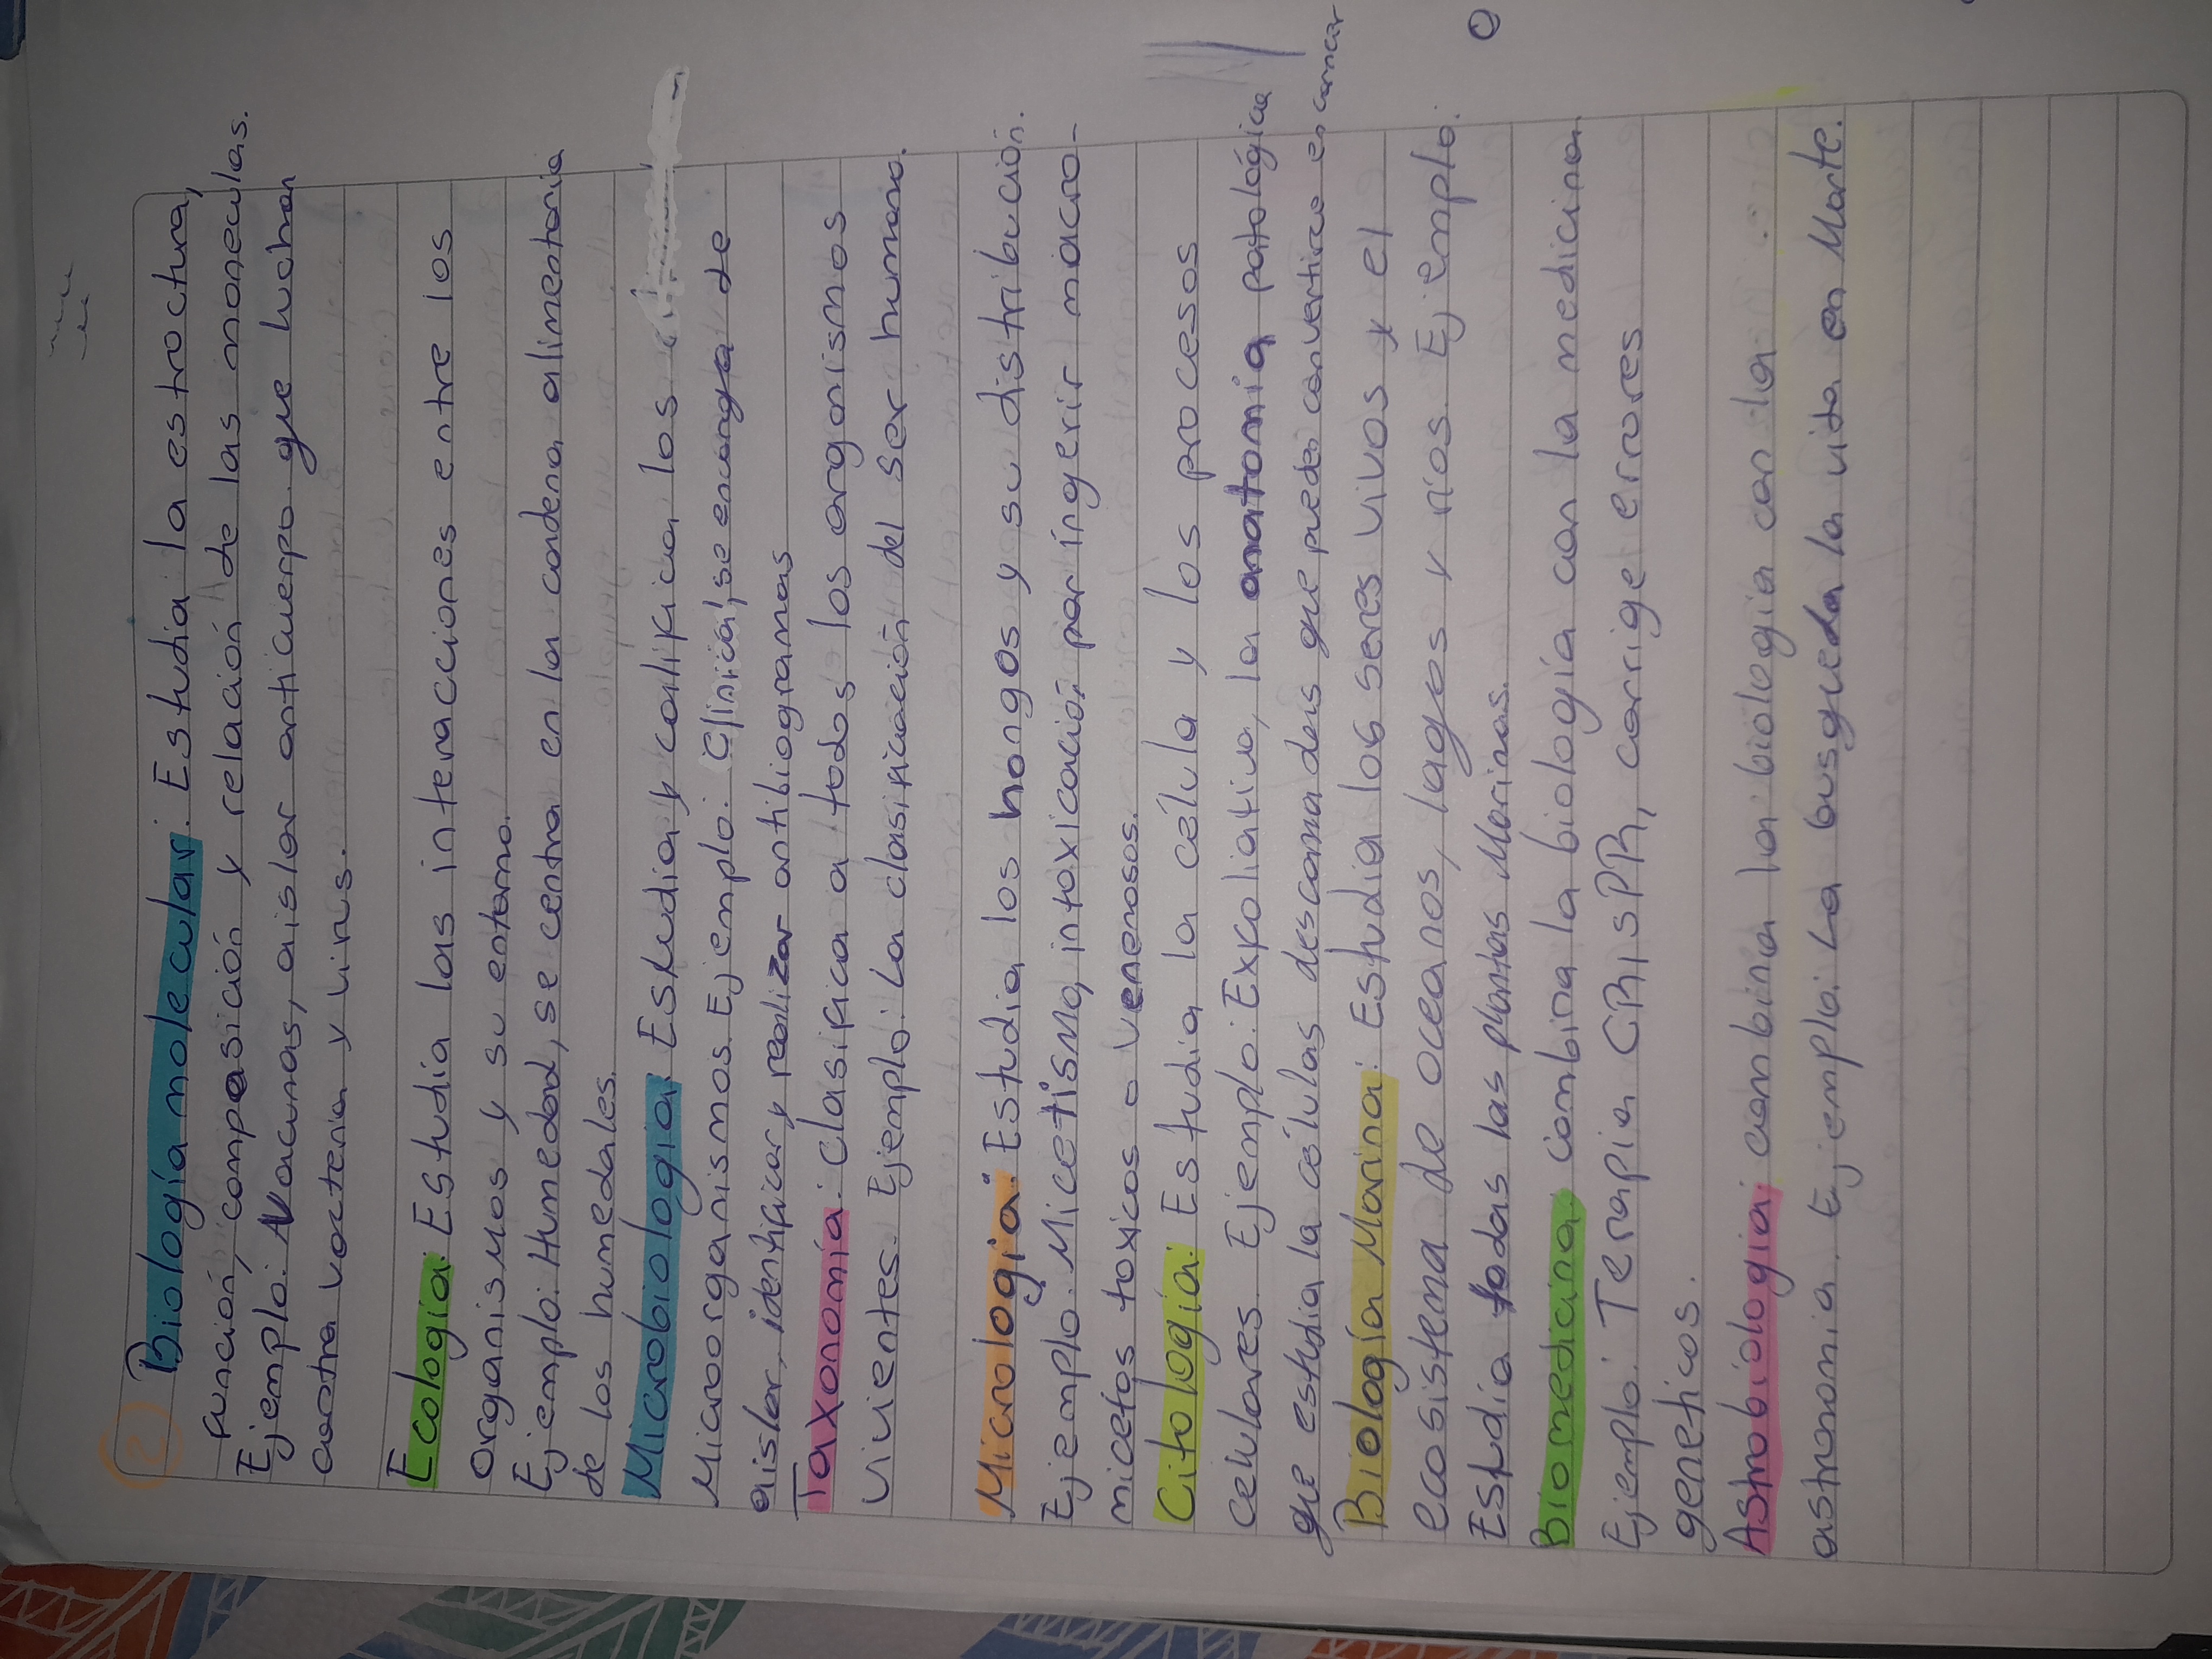 2
Biología molecular: Estudia la estroctura,
función, composición y relación de las moneculas.
Ejemplo: Vacunas, aislar anticuerpo que luchan
contra vacteria y virus.
Ecologia: Estudia las interacciones entre los
organismos y su entorno.
Ejemplo: Humedad, se centra en la cadena alimentaria
de los humedales.
Microbiologia: Estudia y califica los
Microorganismos. Ejemplo: Clinica, se encarga de
aislar, identificar y realizar antibiogramas
Taxonomía: clasifica a todos los organismos
vivientes. Ejemplo: La clasificación del ser humano.
Micrologia: Estudia los hongos y su distribución.
Ejemplo: Micetismo, intoxicación por ingerir macro-
micetos toxicos o venenosos.
Citología: Estudia la célula y los procesos
celulares. Ejemplo: Exfoliativa, la anatomia patológica
que estudia la células descamadas que puede convertirce en cancer
Biología Marina: Estudia los seres vivos y el
ecosistema de oceanos, lagos y ríos Ejemplo:
Estudia todas las plantas Marinas.
Biomedicina: combina la biología con la medicina
Ejemplo: Terapia CRISPR, corrige errores
geneticos.
Astrobiologia: combina la biologia con la
astronomia. Ejemplo: La busqueda la vida en Marte.